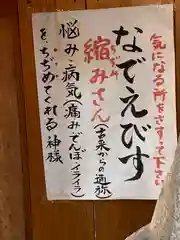 気になる所をさすって下さい
なでえびす
縮みさん(古来からの通称)
悩み・病気(痛み・でんぼ・イライラ)
を、ちぢめてくれる神様